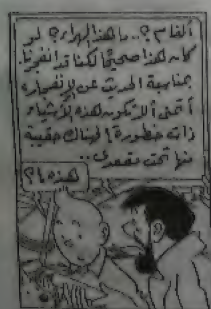 ألغام؟.. ما هذا الهراء؟ لو
كان هذا صحيحًا لكنا قد انفجرنا.
بمناسبة الحديث عن الانفجار،
أتمنى ألا تكون هذه الأشياء
ذات خطورة! هناك حقيبة
منها تحت مقعدى..
هذه؟!